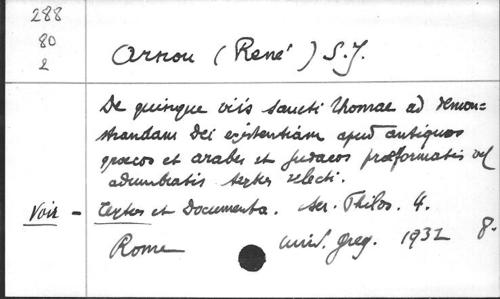 288
80
2
Arnou (René) S.J.
De quinque viis sancti Thomae ad demon-
strandam Dei existentiam apud antiquos
graecos et arabes et Judaeos praeformatis vel
adumbratis textus selecti.
Voir - Textus et Documenta. Ser. Philos. 4.
Rome univ. greg. 1932 8.